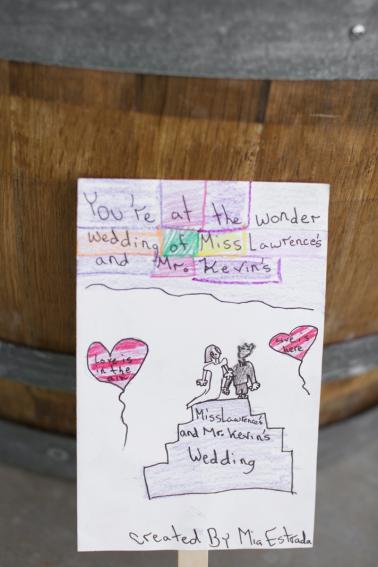 You're at the wonder
wedding of Miss Lawrence's
and Mr. Kevin's
Love is
in the
air
Love is
here
Miss Lawrence's
and Mr. Kevin's
Wedding
created By Mia Estrada